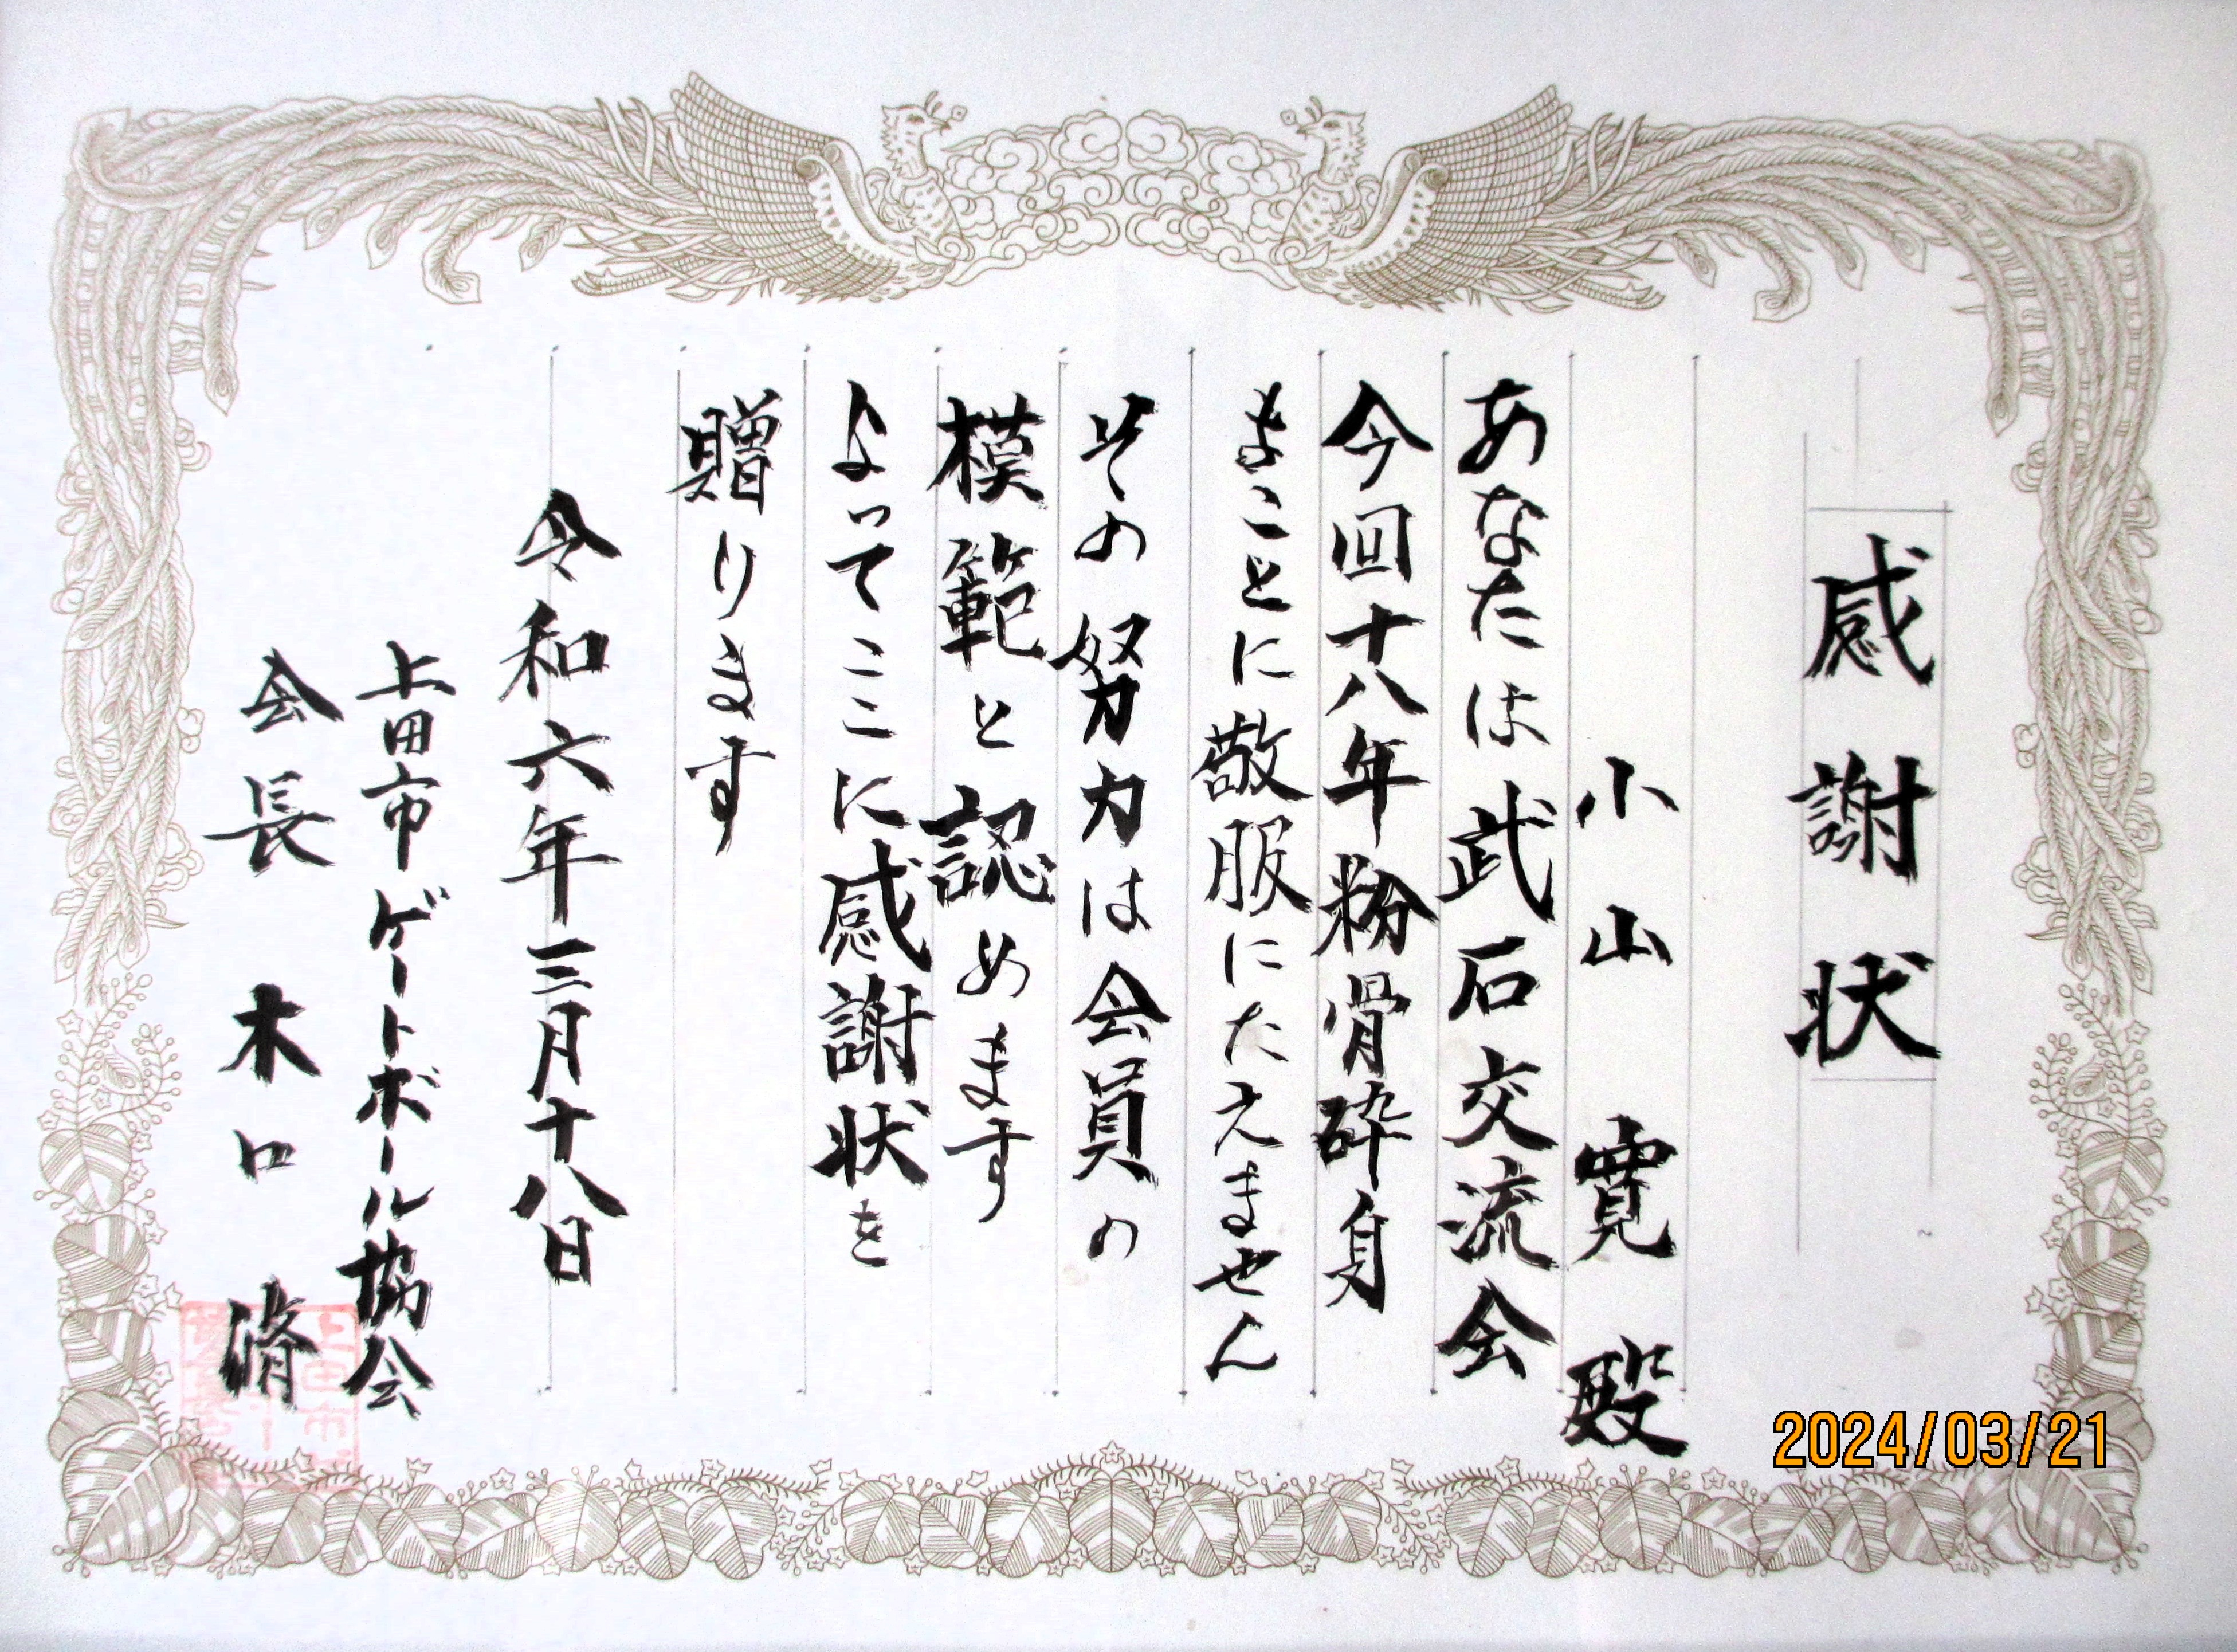 感謝状
小山寛殿
あなたは武石交流会
今回十八年粉骨砕身
まことに敬服にたえません
その努力は会員の
模範と認めます
よってここに感謝状を
贈ります
令和六年三月十八日
上田市ゲートボール協会
会長 木口
2024/03/21